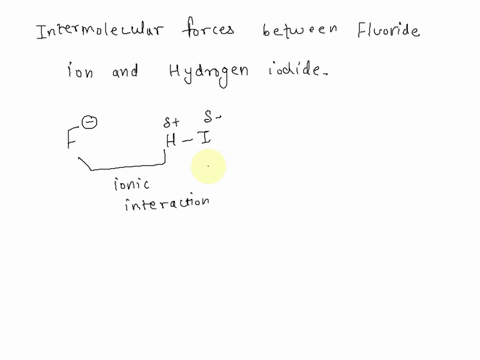 Intermolecular forces between Fluoride
ion and Hydrogen iodide.
F⊖ δ+ H – I δ-
ionic
interaction